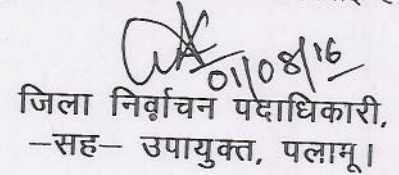 01/08/16
जिला निर्वाचन पदाधिकारी,
–सह– उपायुक्त, पलामू।